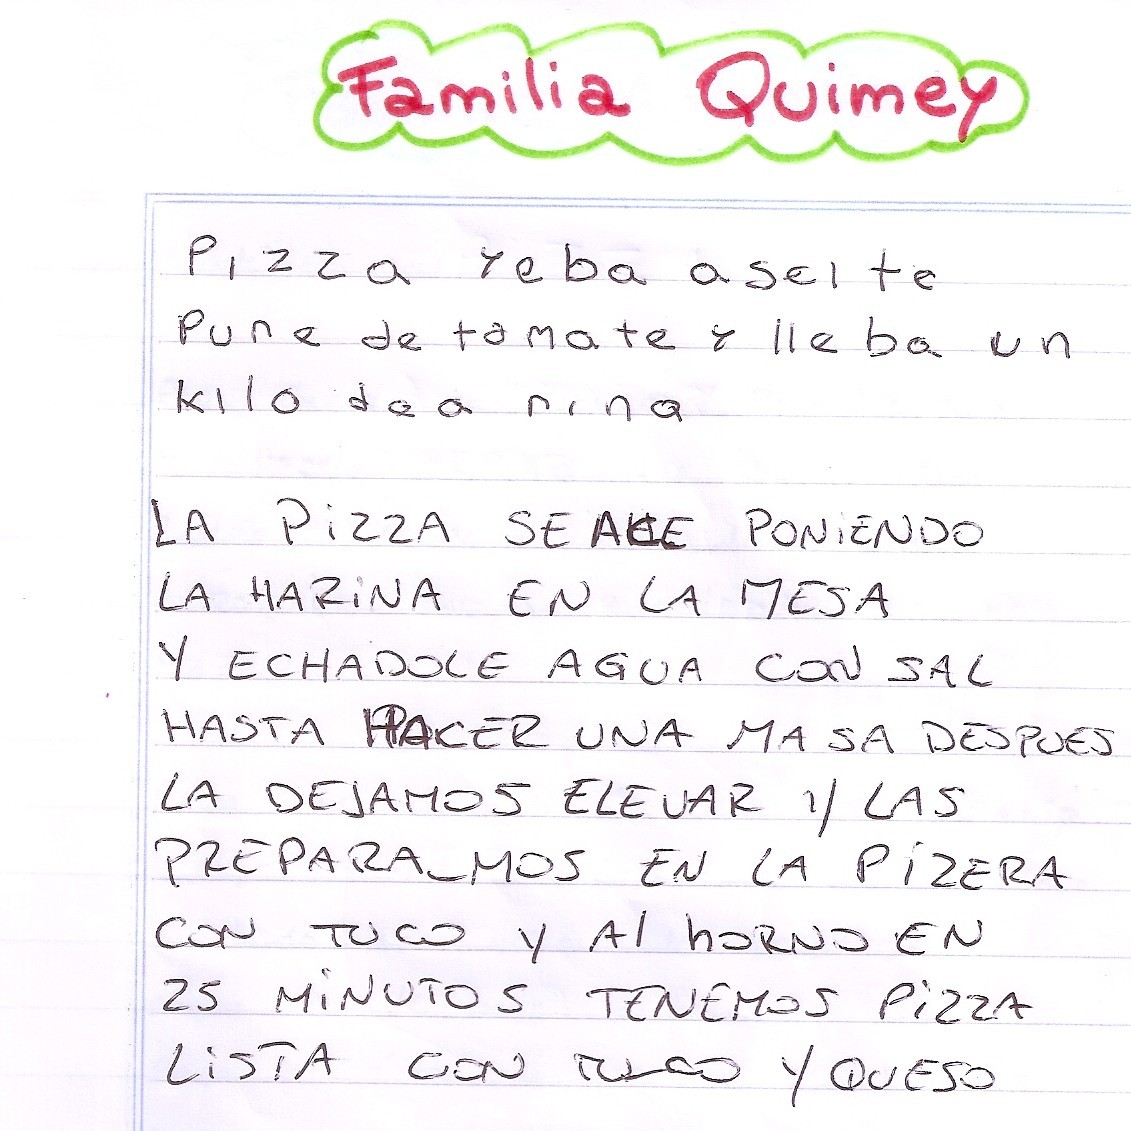 Familia Quimey
Pizza Yeba aseite
Pure de tomate y lleba un
kilo dea rina
LA PiZZA SE ACE PONiENDO
LA HARiNA EN LA MESA
Y ECHADOLE AGUA CON SAL
HASTA HACER UNA MASA DESPUES
LA DEJAMOS ELEVAR Y LAS
PREPARA_MOS EN LA PiZERA
CON TUCO Y Al hORNO EN
25 MiNUTOS TENEMOS PiZZA
LiSTA CON TUCO Y QUESO